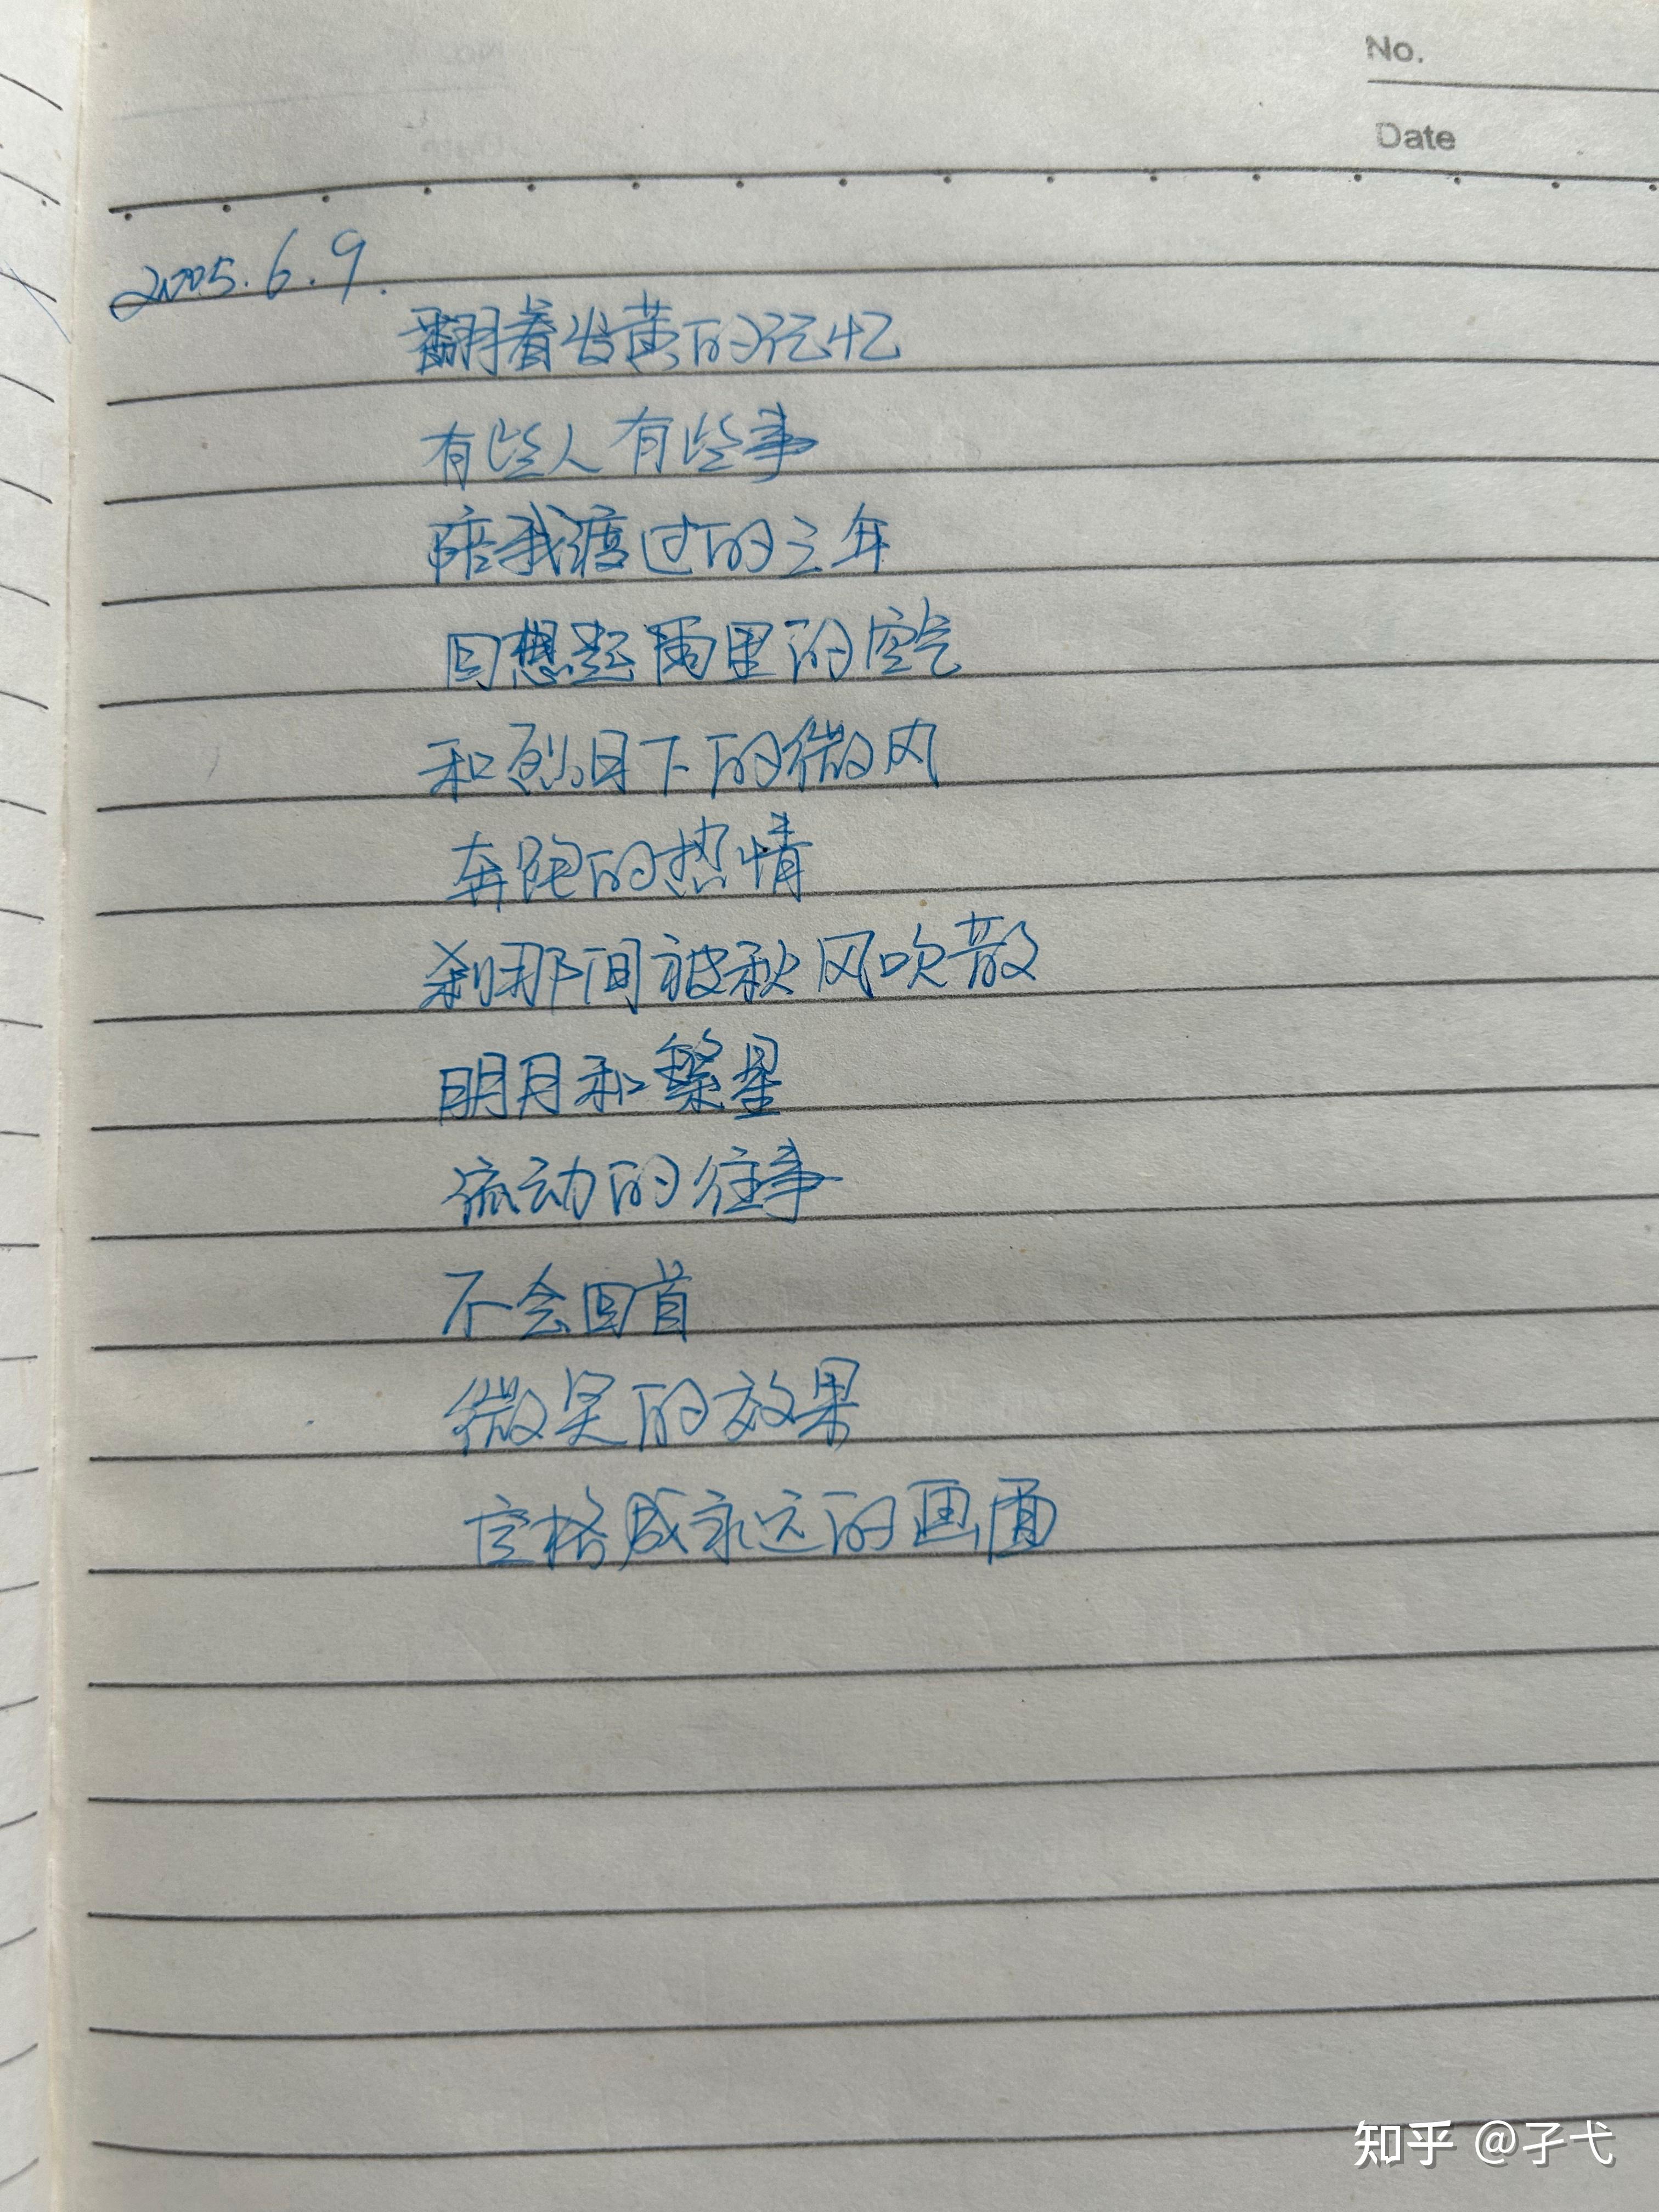 No.
Date
2005.6.9.
翻着发黄的记忆
有些人有些事
陪我渡过的三年
回想起雨里的空气
和烈日下的微风
奔跑的热情
刹那间被秋风吹散
明月和繁星
流动的往事
不会回首
微笑的效果
定格成永远的画面
知乎 @孑弋